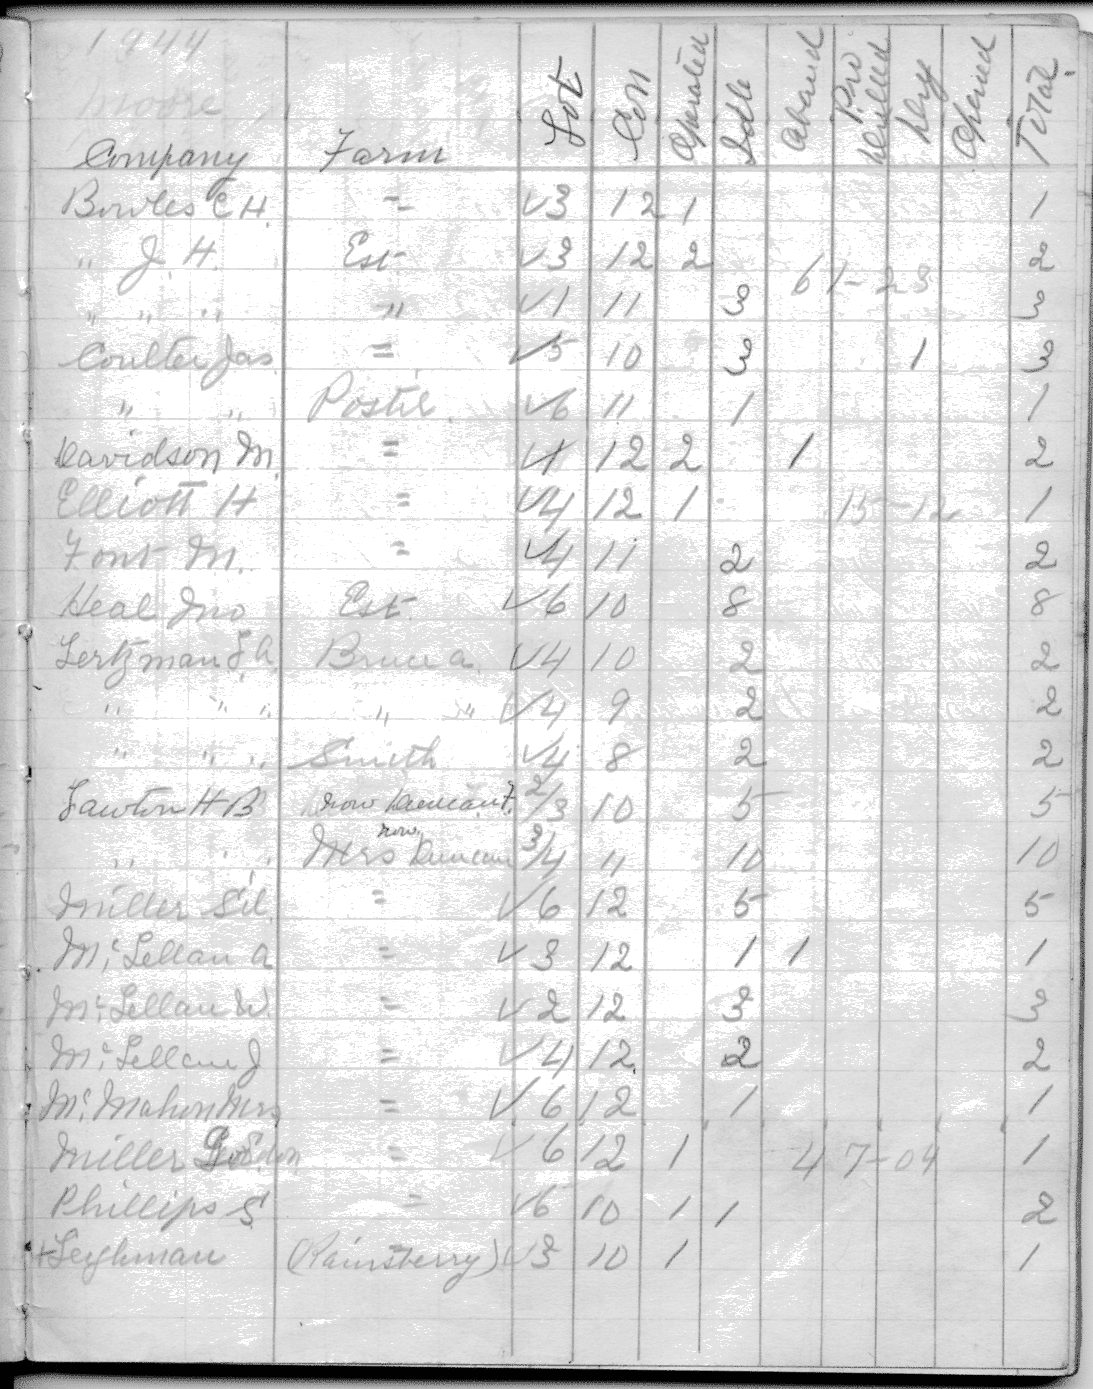 1944
Moore
Company Farm Lot Con Operated Idle Aband Pro Drilled Dry Opened Total
Bowles C H. " √3 12 1 1
" J. H. Est. √3 12 2 61-23 2
" " " " √1 11 3 3
Coulter Jas " √5 10 3 1 3
" " Postil √6 11 1 1
Davidson M. " √1 12 2 1 2
Elliott H " √4 12 1 15-12 1
Font M. " √4 11 2 2
Heal Jno Est. √6 10 8 8
Lertzman L.A. Bruce A. √4 10 2 2
" " " " " √4 9 2 2
" " " Smith √4 8 2 2
Lawton H B now Duncan F. 2/3 10 5 5
" " " Mrs now Duncan 3/4 11 10 10
Miller Sil. " √6 12 5 5
Mc Lellan A " √3 12 1 1 1
Mc Lellan W. " √2 12 3 3
Mc Lellan J " √4 12 2 2
Mc Mahon Mrs " √6 12 1 1
Miller Gordon " √6 12 1 47-04 1
Phillips S " √6 10 1 1 2
+Leyhman (Rainsberry) √3 10 1 1